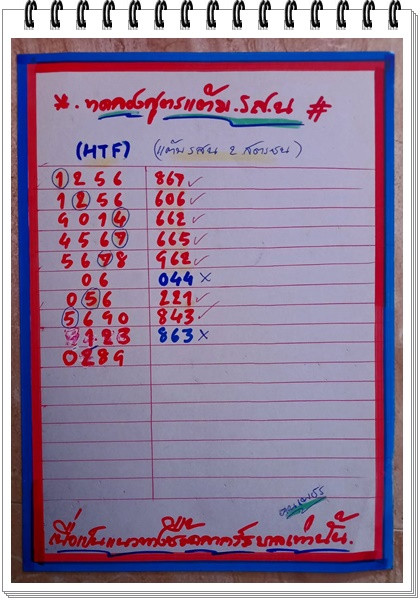 *. ทดลองสูตรแต้ม.รส.น #
(HTF) (แต้ม รสน 2 สตรชน)
1 2 5 6 867 ✓
1 2 5 6 606 ✓
9 0 1 4 662 ✓
4 5 6 7 665 ✓
5 6 7 8 962 ✓
0 6 044 ×
0 5 6 221 ✓
5 6 9 0 843 ✓
9 1 2 3 863 ×
0 2 8 9
เพื่อเป็นแนวทางซื้อสลากรัฐบาลเท่านั้น.